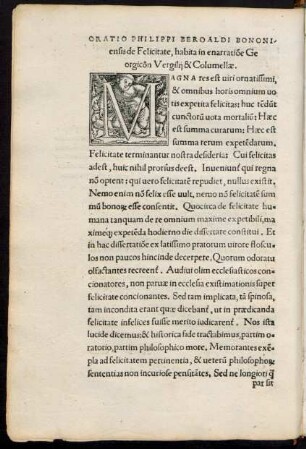 ORATIO PHILIPPI BEROALDI BONONI-
ensis de Felicitate, habita in enarratiõe Ge
orgicõn Vergilij & Columellæ.
MAGNA res est uiri ornatissimi,
& omnibus horis omnium uo
tis expetita felicitas: huc tẽdũt
cunctorũ uota mortaliũ: Hæc
est summa curarum: Hæc est
summa rerum expetẽdarum.
Felicitate terminantur nostra desideria: Cui felicitas
adest, huic nihil prorsus deest. Inueniunt qui regna
nõ optent: qui uero felicitatẽ repudiet, nullus existit.
Nemo enim nõ felix esse uult, nemo nõ felicitatẽ sum
mũ bonũ esse consentit. Quocirca de felicitate hu
mana tanquam de re omnium maxime expetibili, ma
ximeq̃ expetẽda hodierno die dissertare constitui. Et
in hac dissertatiõe ex latissimo pratorum uirore flosculos
non paucos hincinde decerpere. Quorum odoratu
olfactantes recreent. Audiui olim ecclesiasticos con
cionatores, non paruæ in ecclesia existimationis super
felicitate concionantes. Sed ram implicata, tã spinosa,
tam incondita erant quæ dicebant, ut in prædicanda
felicitate infelices fuisse merito iudicarent. Nos ista
lucide dicemus: & historica fide tractabimus, partim o-
ratorio, partim philosophico more. Memorantes exẽ-
pla ad felicitatem pertinentia, & ueterũ philosophoꝝ
sententias non incuriose pensitãtes, Sed ne longiori q̃
par sit